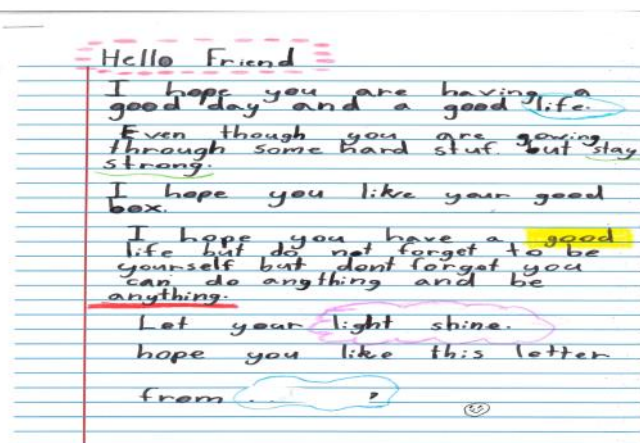 Hello Friend
I hope you are having a
good day and a good life.
Even though you are gowing
through some hard stuf. but stay
strong.
I hope you like your good
box.
I hope you have a good
life but do not forget to be
yourself but dont forget you
can do angthing and be
anything.
Let your light shine.
hope you like this letter
from .. ?